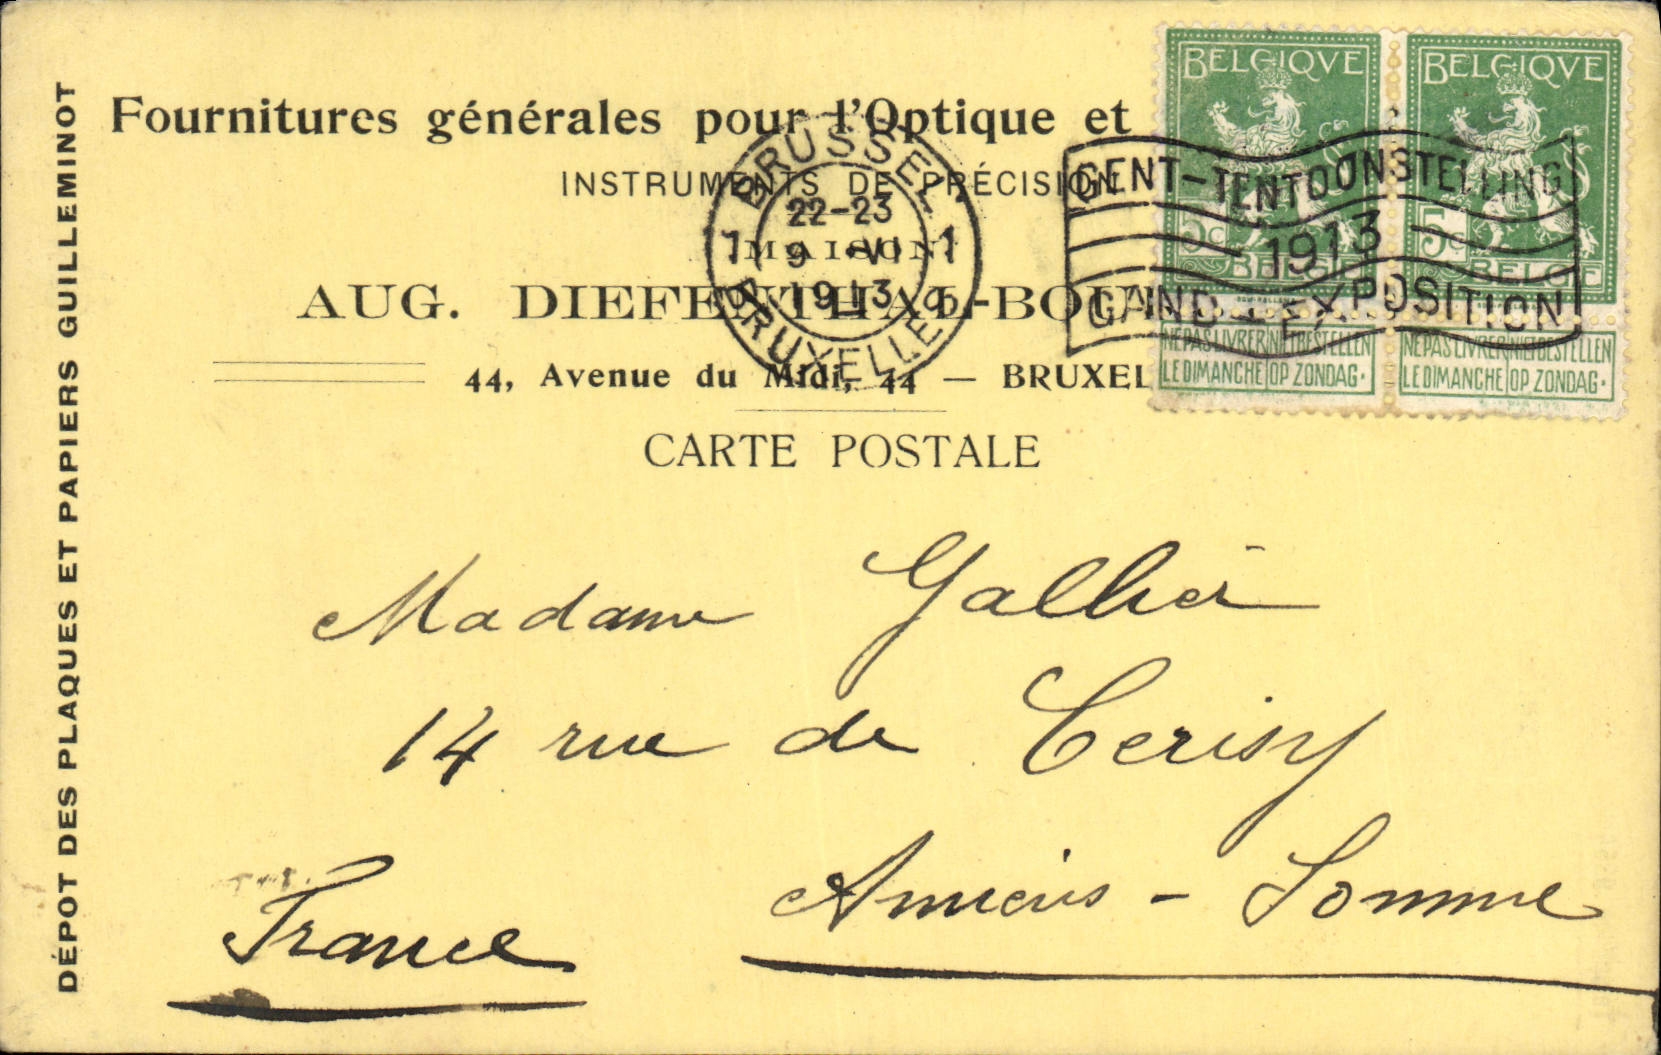 DÉPOT DES PLAQUES ET PAPIERS GUILLEMINOT
Fournitures générales pour l'Optique et
INSTRUMENTS DE PRÉCISION
MAISON
AUG. DIEFENTHAL-BOU
44, Avenue du Midi, 44 — BRUXEL
CARTE POSTALE
BRUSSEL
1 1
22-23
9 ·VI
1913
BRUXELLES
GENT-TENTOONSTELLING
1913
GAND-EXPOSITION
BELGIQVE
5c
BELGIE
NE PAS LIVRER NIET BESTELLEN
LE DIMANCHE OP ZONDAG.
BELGIQVE
5c
BELGIE
NE PAS LIVRER NIET BESTELLEN
LE DIMANCHE OP ZONDAG.
Madame Gallier
14 rue de Cerisy
Amiens - Somme
France